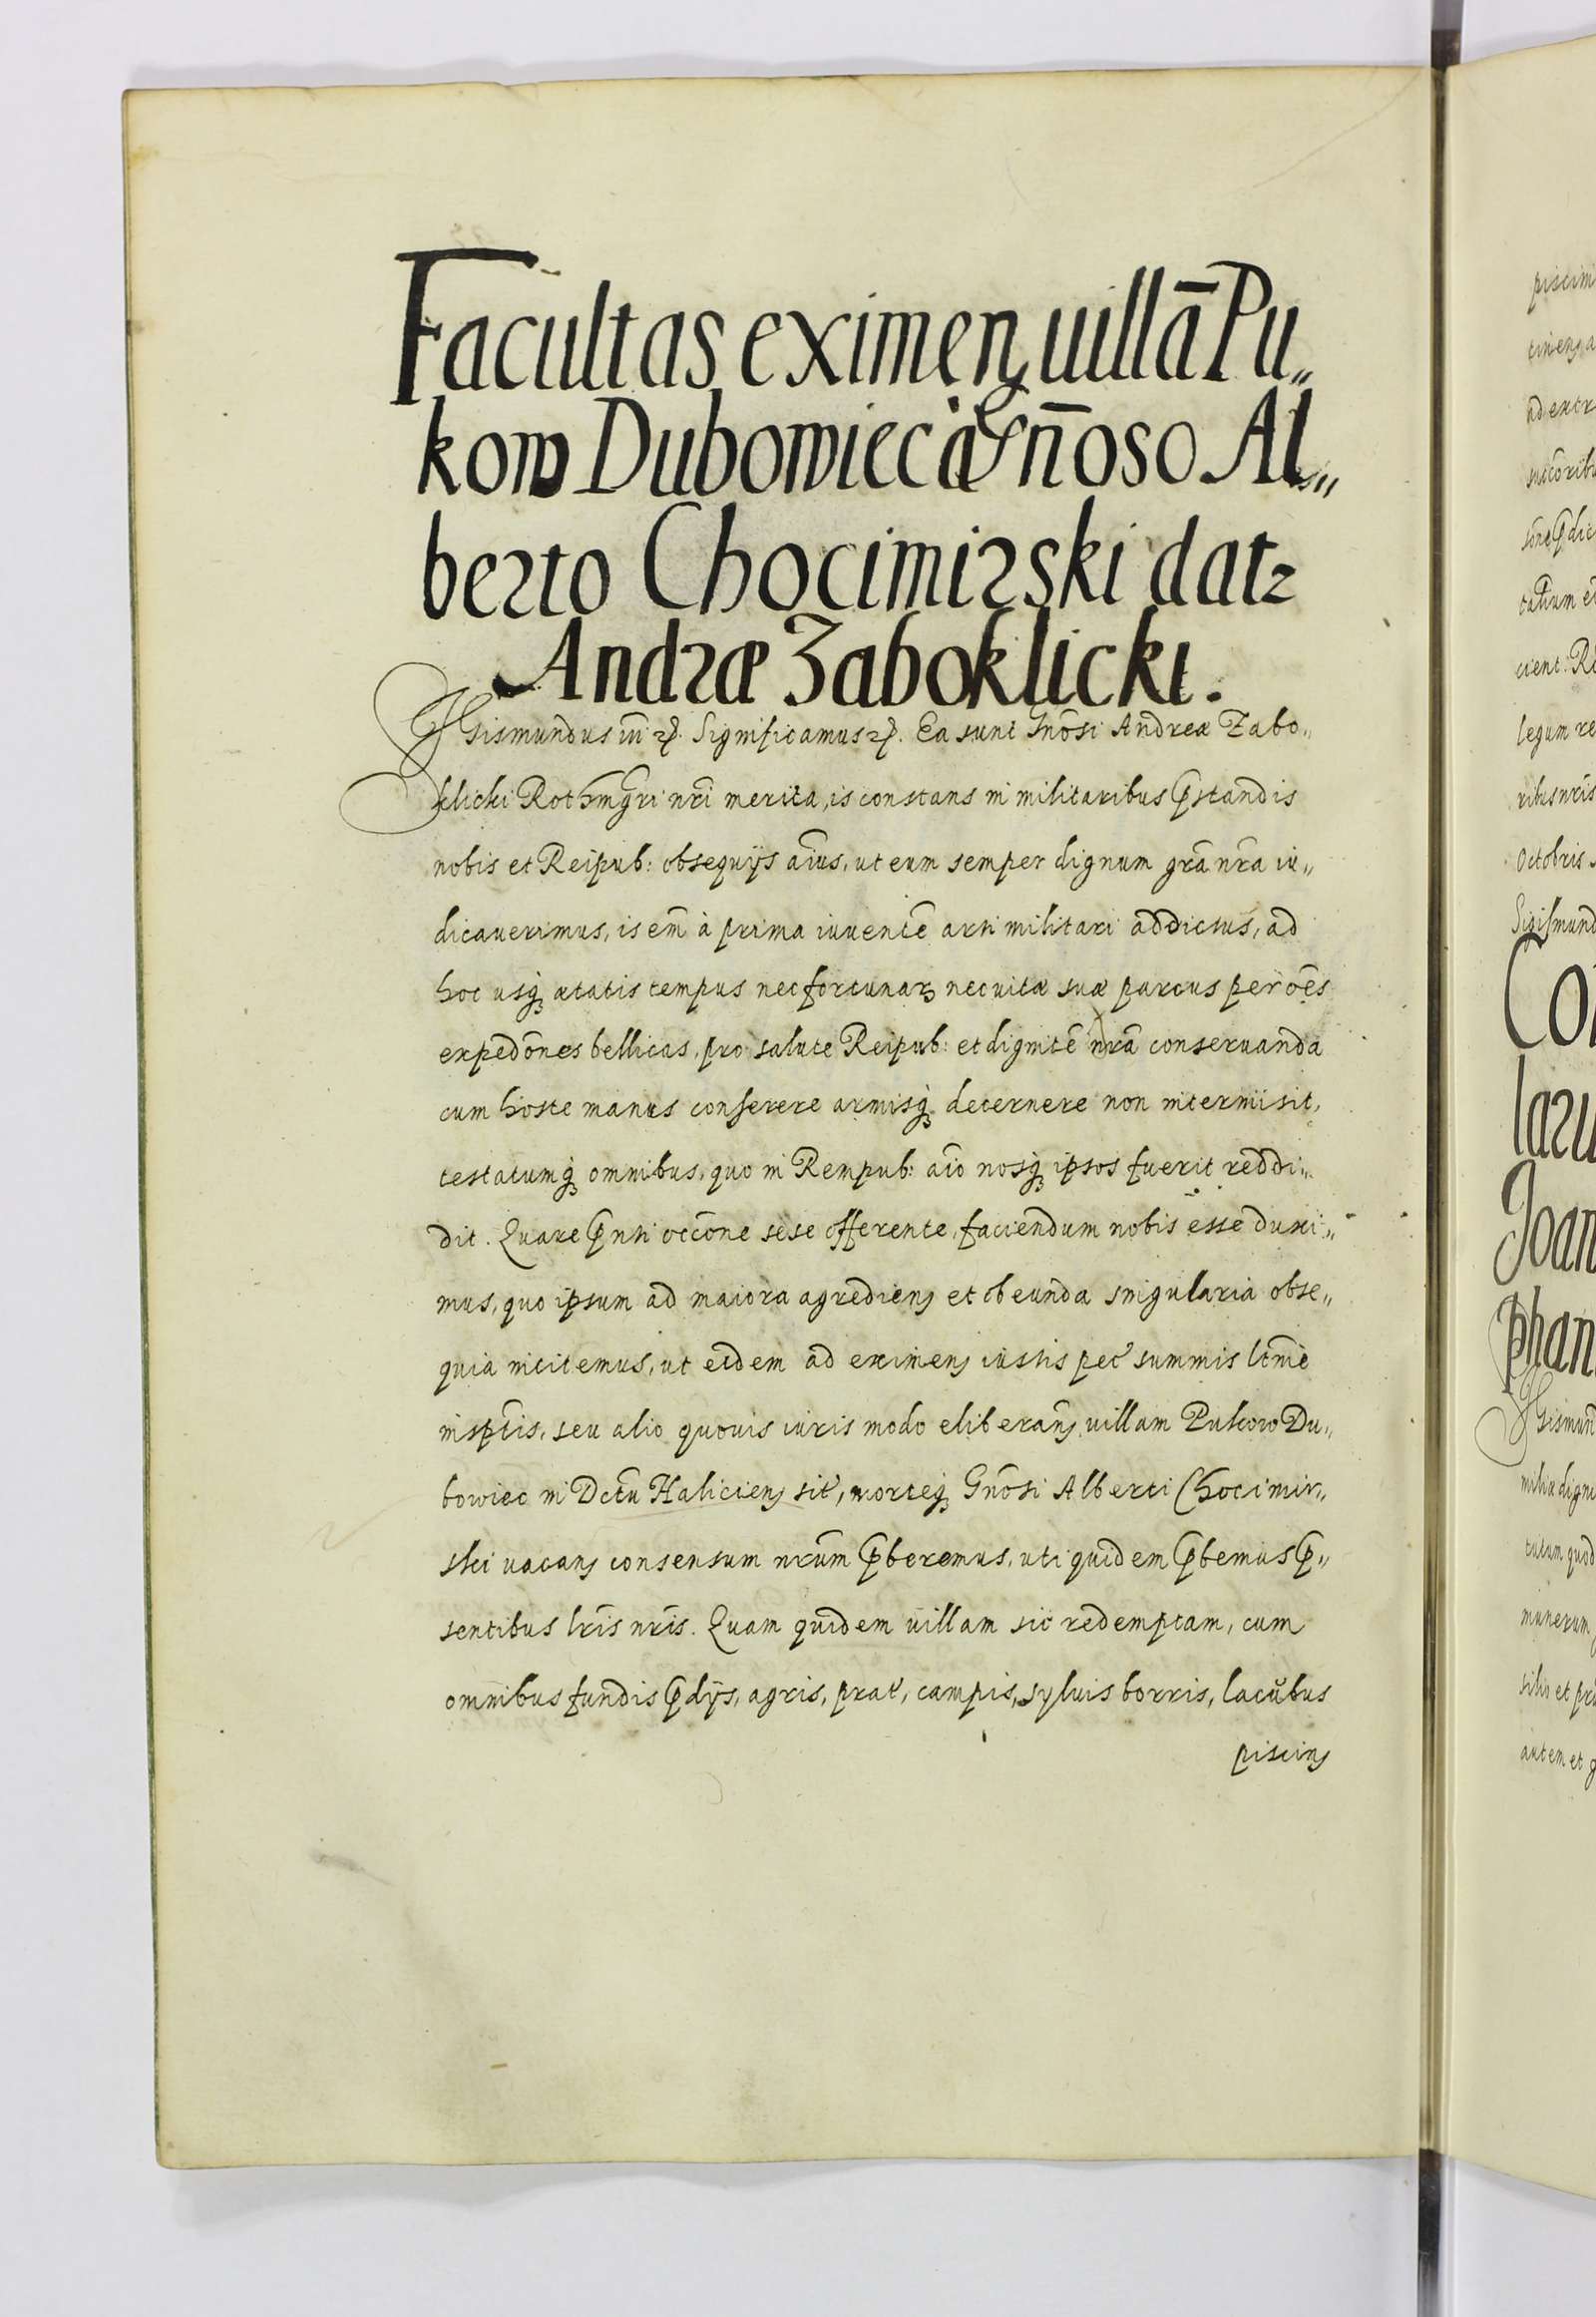 Facultas eximen uillã Pu„
kow Dubowiec à Gñoso Al„
berto Chocimirski dat
Andræ Zaboklicki.
Sigismundus iii Significamus Ea sunt Gnõsi Andreæ Zabo„
klicki Rothmgri nri merita, is constans in militaribus pstandis
nobis et Reipub: obsequijs aius, ut eum semper dignum grã nrã iu„
dicauerimus, is em à prima iuuentẽ arti militari addictus, ad
hoc usq ætatis tempus nec fortunar nec uitæ suæ parcus per oẽs
expedõnes bellicas, pro salute Reipub: et dignitẽ nrã conseruanda
cum hoste manus conserere armisq decernere non intermisit,
testatumq omnibus, quo in Rempub: aio nosq ipsos fuerit reddi„
dit. Quare pnti occõne sese offerente, faciendum nobis esse duxi„
mus, quo ipsum ad maiora agrediens et obeunda singularia obse„
quia incitemus, ut eidem ad eximen iustis pec summis ltme
insptis, seu alio quouis iuris modo eliberan uillam Pukow Du„
bowiec in Dctu Haliciens sit, morteq Gnõsi Alberti Chocimir„
ski uacan consensum nrum pberemus, uti quidem pbemus p„
sentibus lris nris. Quam quidem uillam sic redemptam, cum
omnibus fundis pdijs, agris, prat, campis, syluis borris, lacubus
piscin
piscini
ad extr
legum re
ribus nris
Octobris
Sigismund
Con
laru
Joan
phan
Sigismun
milia digni
tulum quod
munerum
silio et pru
autem et g